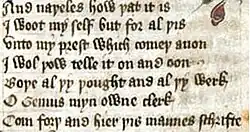 And naþeles how þat it is
I woot my self but for al þis
Unto my prest which comeþ anon
I wol ȝow telle it on and oon
Boþe al my þought and al my werk
O Genius myn owne clerk
Com forþ and hier þis mannes schrifte